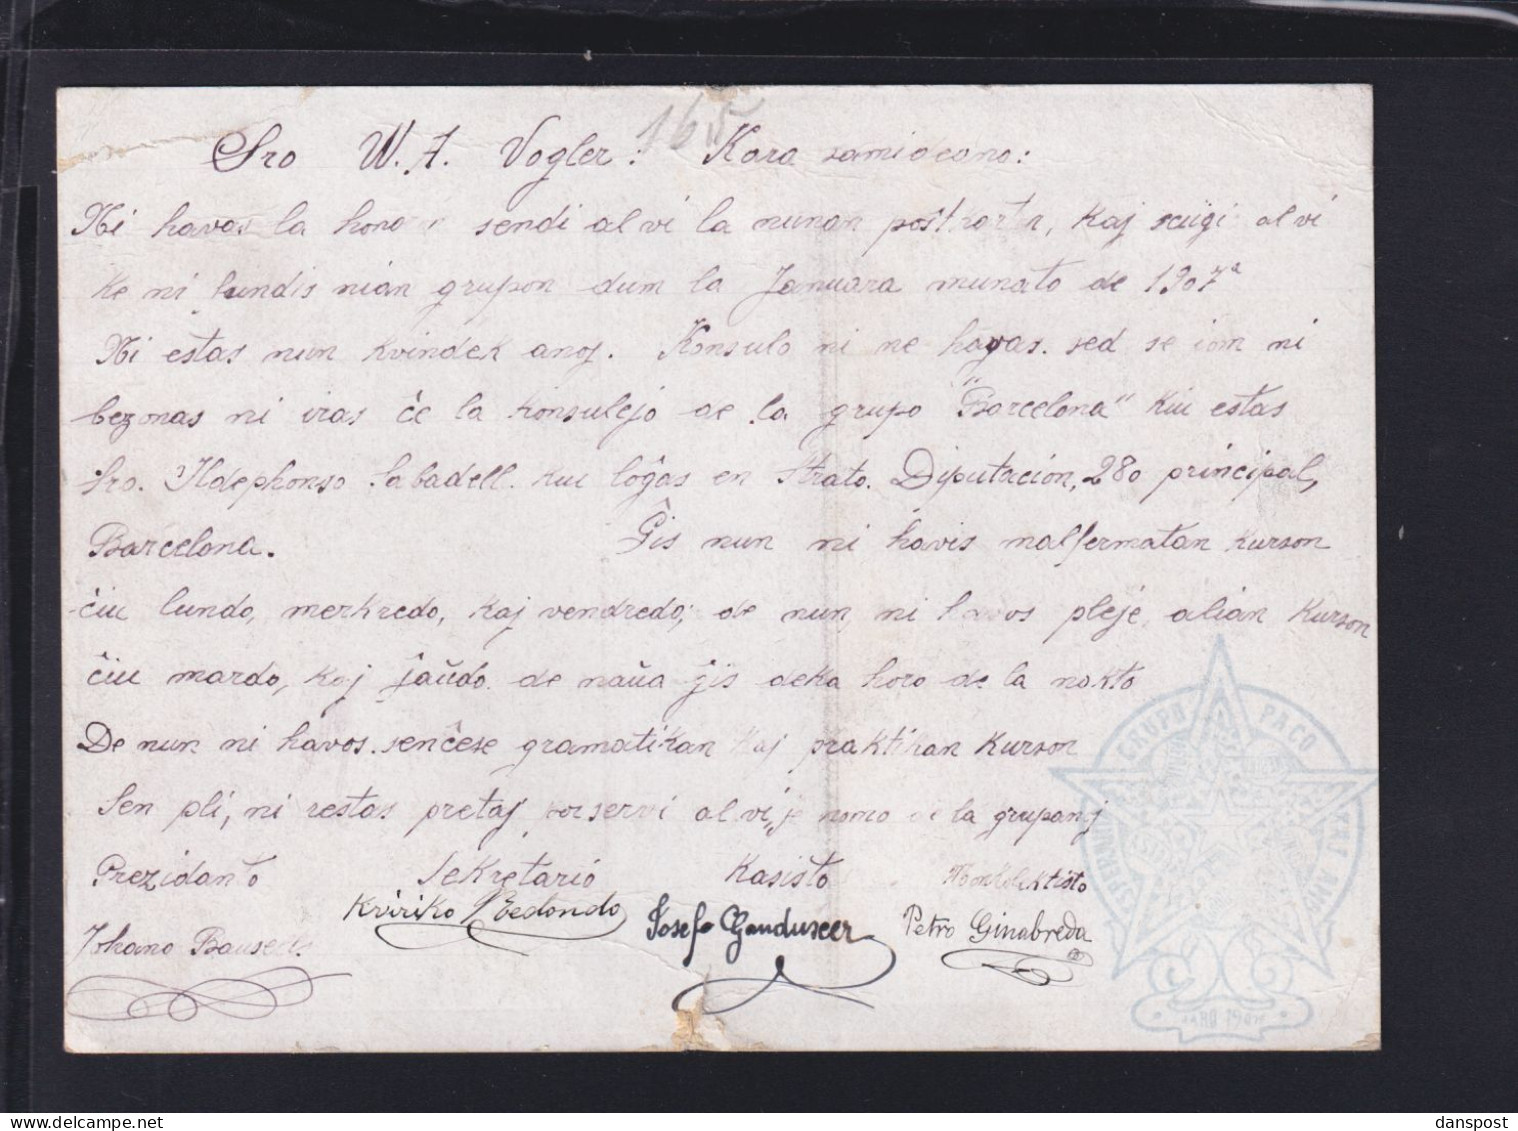 165
Sro W. A. Vogler: Kara samideano:
Ni havas la honoron sendi al vi la nunan poŝtkarton, kaj sciigi al vi
ke ni fundis nian grupon dum la Januara munato de 1907ª
Ni estas nun kvindek anoj. Konsulo ni ne havas. sed se iom ni
bezonas ni iras ĉe la konsulejo de la grupo "Barcelona" kiu estas
Sro. Ildephonso Sabadell. kiu loĝas en Strato. Diputación, 280 principal,
Barcelona. Ĝis nun ni havis malfermatan kurson
ĉiu lundo, merkredo, kaj vendredo; de nun ni havos pleje alian kurson
ĉiu mardo, kaj ĵaŭdo de naŭa ĝis deka horo de la nokto
De nun ni havos senĉese gramatikan kaj praktikan kurson
Sen pli, ni restas pretaj por servi al vi, je nomo de la grupanoj
Prezidanto Sekretario Kasisto
Johano Kviriko Redondo Josefo Petro Ginabreda
ESPERANTA GRUPO PACO KAJ AMO
JARO
danspost